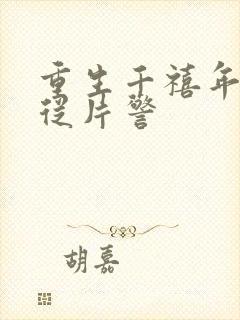 重生千禧年
从片警
胡嘉